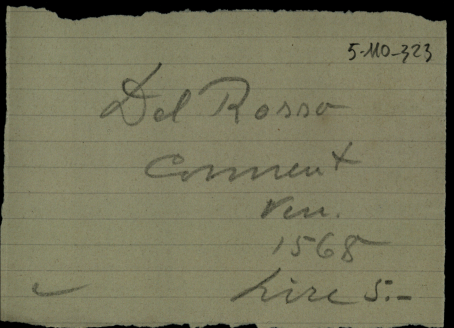 5-110-323
Del Rosso
Comment
Ven.
1568
Lire 5.-